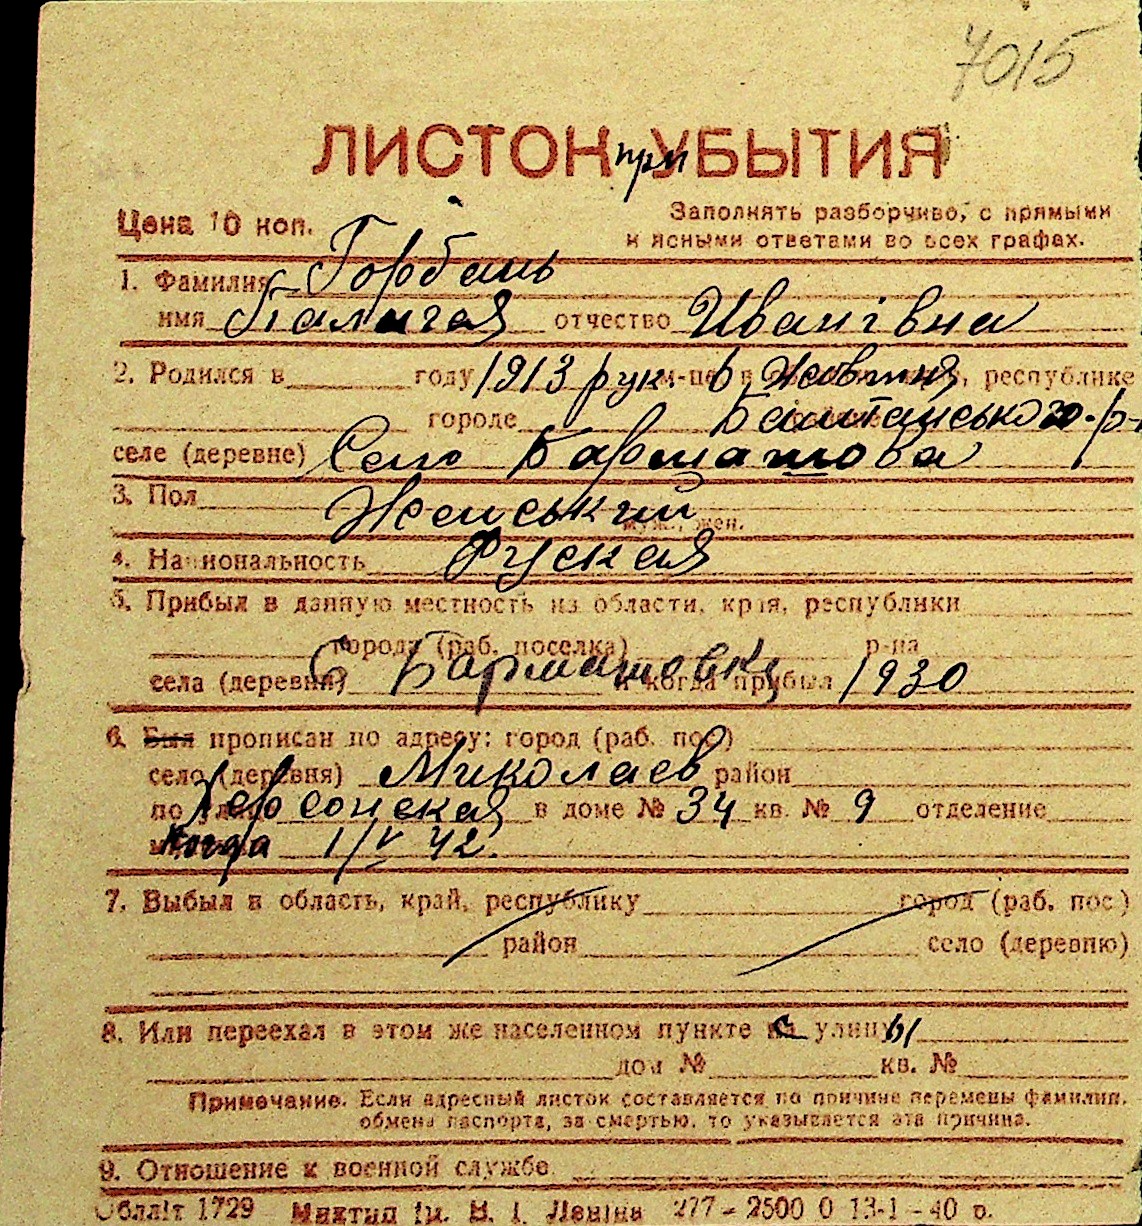 7015
ЛИСТОК при УБЫТИЯ
Цена 10 коп.
Заполнять разборчиво, с прямыми
и ясными ответами во всех графах.
1. Фамилия Горбань
имя Палагея отчество Иванівна
2. Родился в году 1913 рук. м-це в 6 Жовтня, республике
городе Баштанського р-
селе (деревне) Село Бармашова
3. Пол Женський
муж., жен.
4. Национальность Руская
5. Прибыл в данную местность из области, края, республики
города (раб. поселка) р-на
села (деревни) С Бармашовки и когда прибыл 1930
6. Был прописан по адресу: город (раб. пос)
село (деревня) Миколаев район
по улице Херсонская в доме № 34 кв. № 9 отделение
Когда 1/V 42.
7. Выбыл в область, край, республику город (раб. пос)
район село (деревню)
8. Или переехал в этом же населенном пункте с улицы
дом № кв. №
Примечание. Если адресный листок составляется по причине перемены фамилии,
обмена паспорта, за смертью, то указывается эта причина.
9. Отношение к военной службе
Обліт 1729 ім. В. І. Леніна 277 - 2500 0 13-1-40 р.